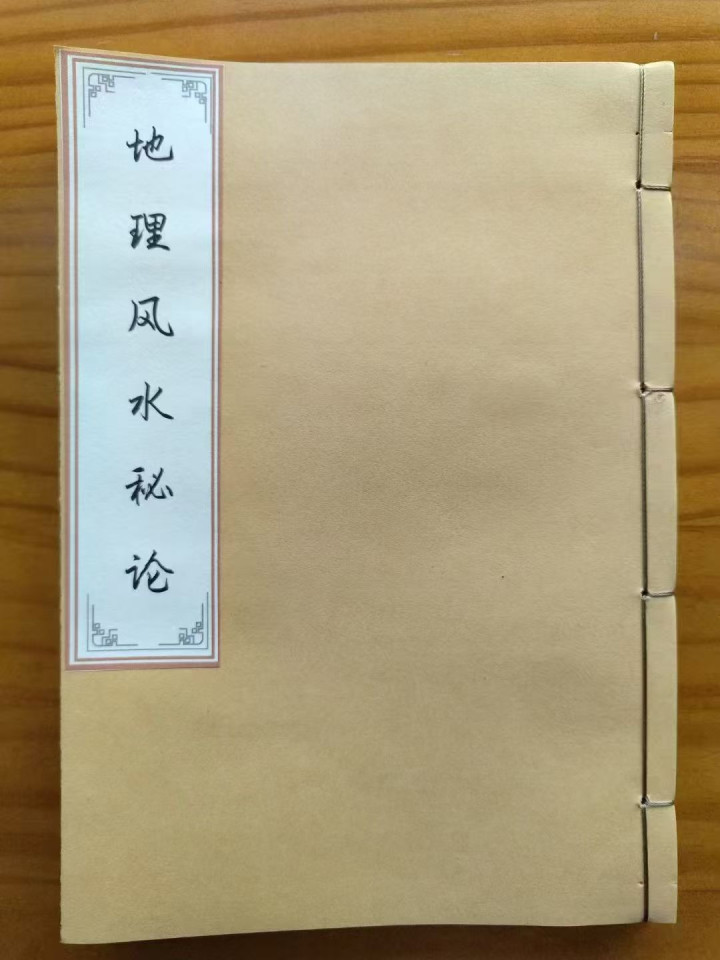 地理风水秘论